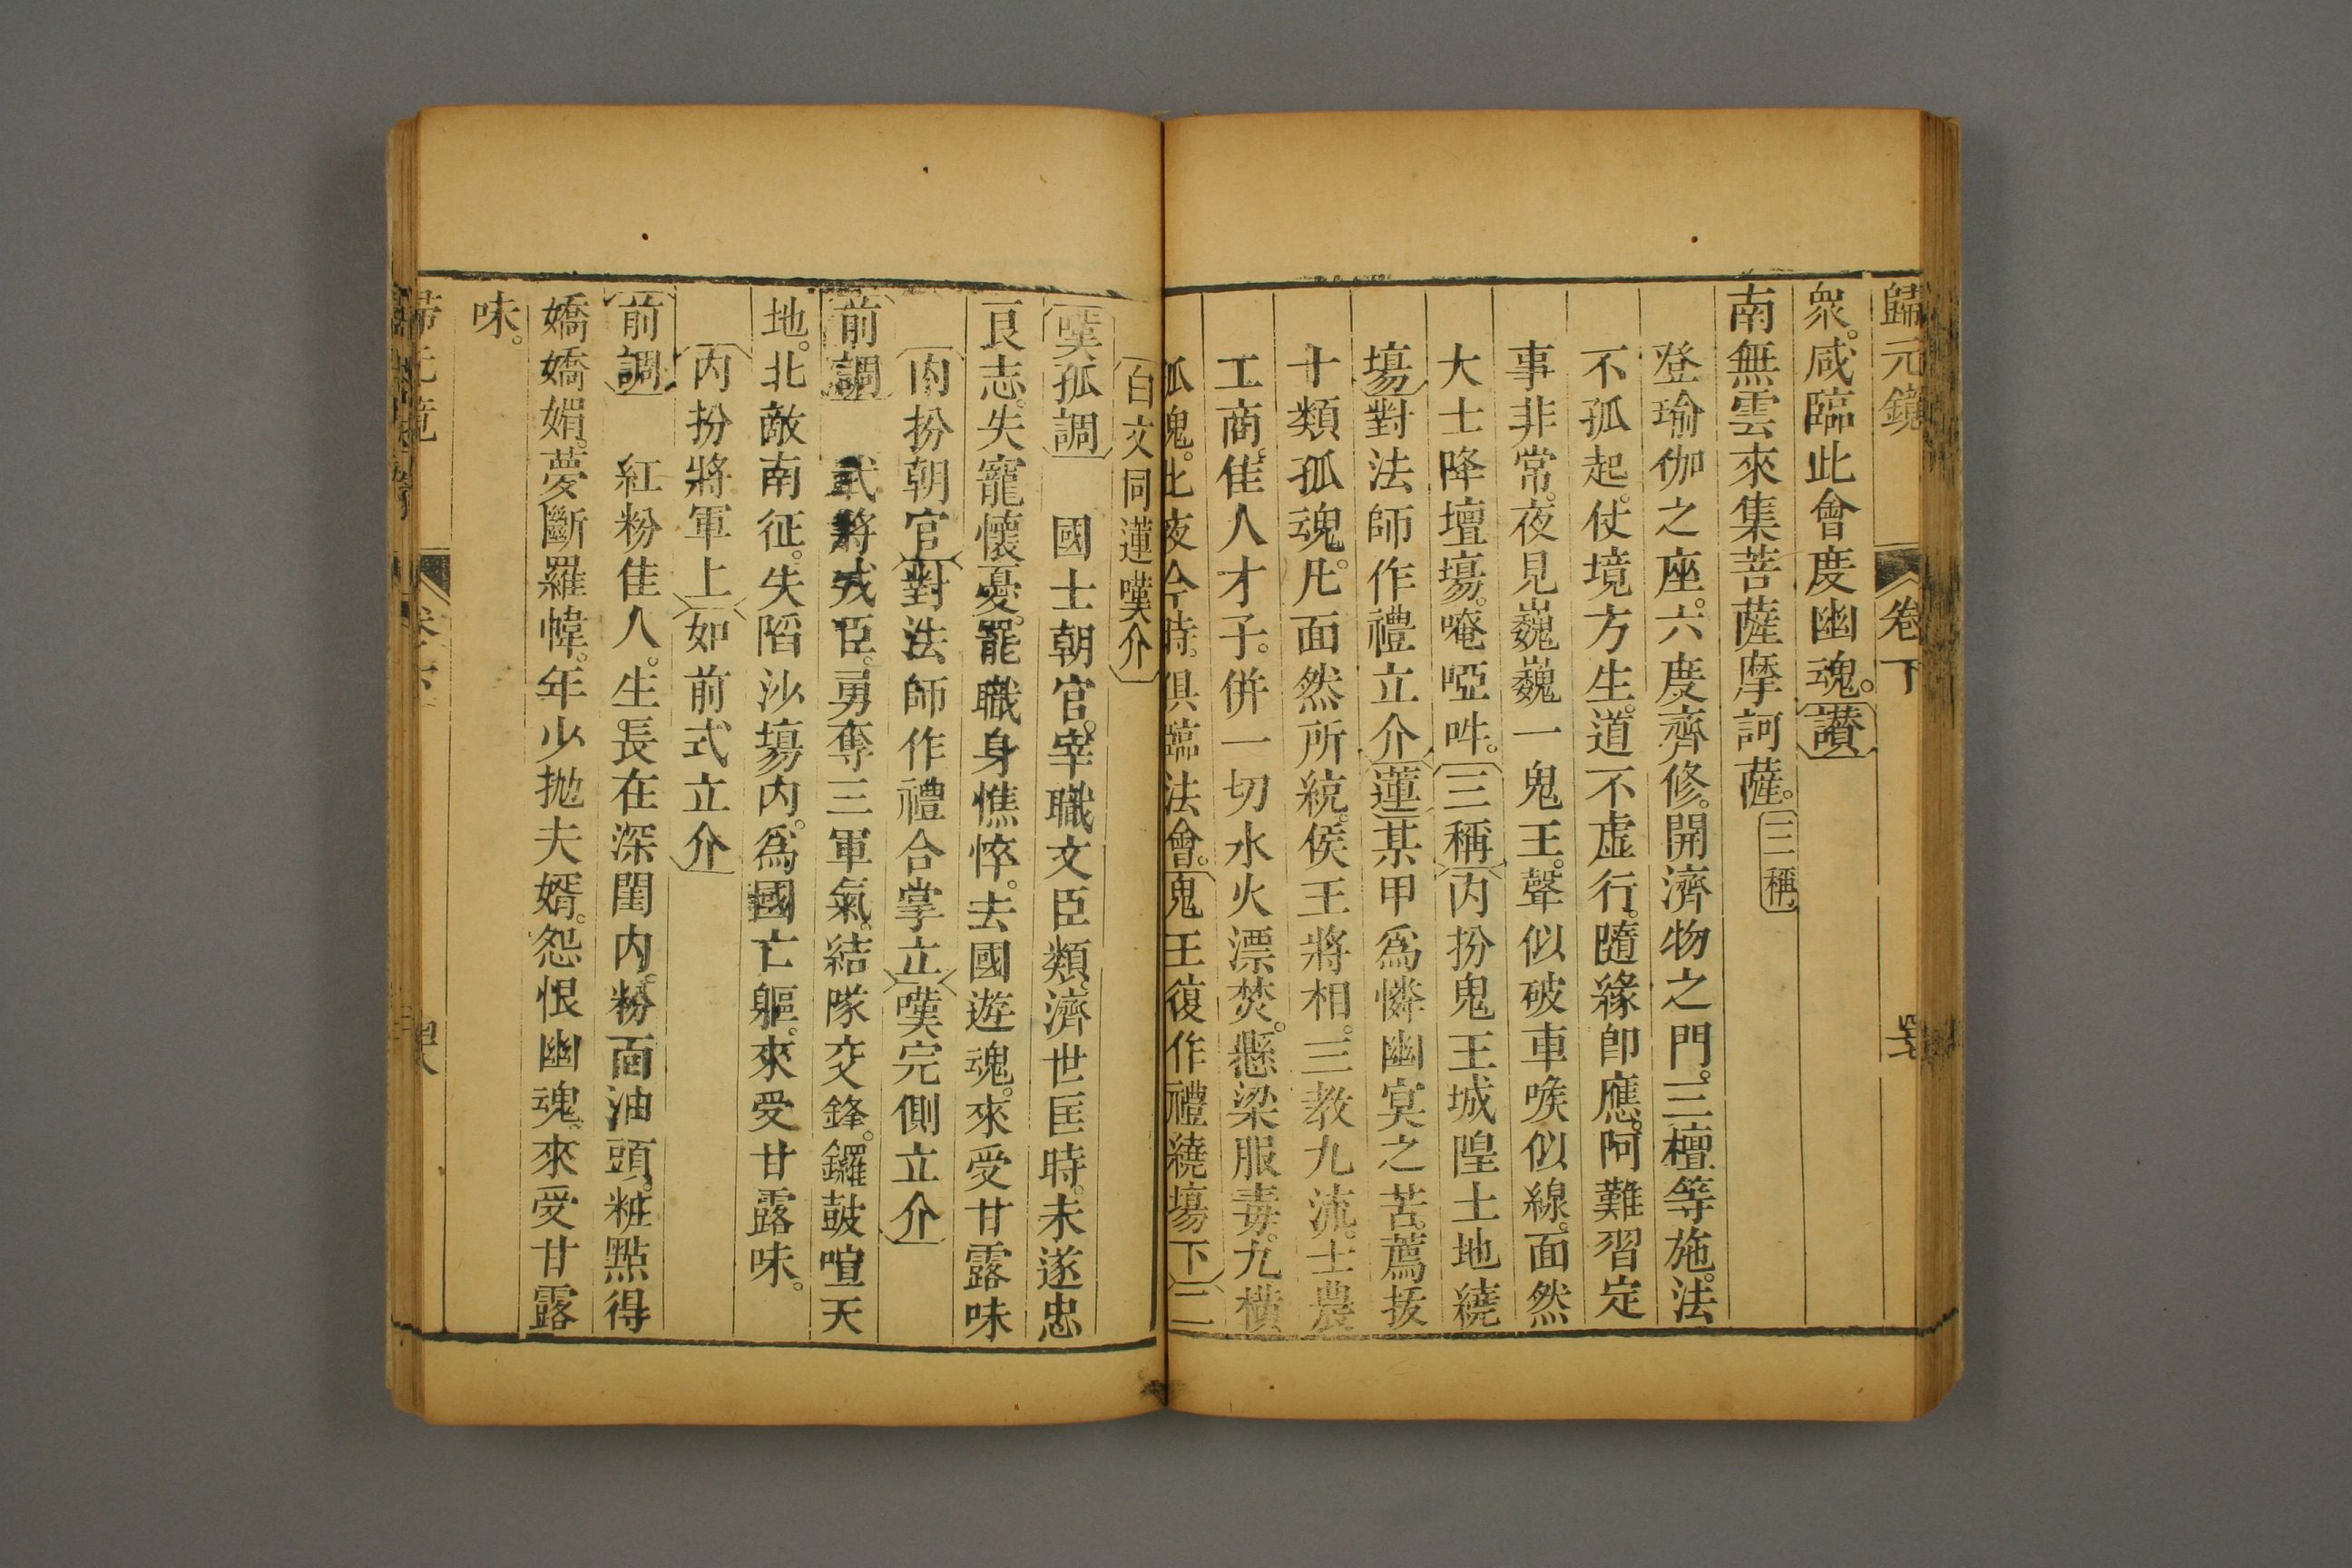 歸元鏡 卷下
衆。咸臨此會度幽魂。讃
南無雲來集菩薩摩訶薩。三稱
登瑜伽之座。六度齊修。開濟物之門。三檀等施。法
不孤起。仗境方生。道不虛行。隨緣卽應。阿難習定
事非常。夜見巍巍一鬼王。聲似破車喉似線。面然
大士降壇塲。唵啞吽。三稱丙扮鬼王城隍土地繞
塲對法師作禮立介蓮某甲爲憐幽冥之苦。薦拔
十類孤魂。凡面然所統。侯王將相。三教九流。士農
工商。佳人才子。併一切水火漂焚。懸梁服毒。九橫
孤魂。此夜今時。俱臨法會。鬼王復作禮繞塲下二
白文同蓮嘆介
嘆孤調 國士朝官。宰職文臣類。濟世匡時。未遂忠
良志。失寵懷憂。罷職身憔悴。去國遊魂。來受甘露味
内扮朝官對法師作禮合掌立嘆完側立介
前調 武將戎臣。勇奪三軍氣。結隊交鋒。鑼鼓喧天
地。北敵南征。失陷沙塲内。爲國亡軀。來受甘露味。
丙扮將軍上如前式立介
前調 紅粉佳人。生長在深閨内。粉面油頭。粧點得
嬌嬌媚。夢斷羅幃。年少抛夫婿。怨恨幽魂。來受甘露
味。